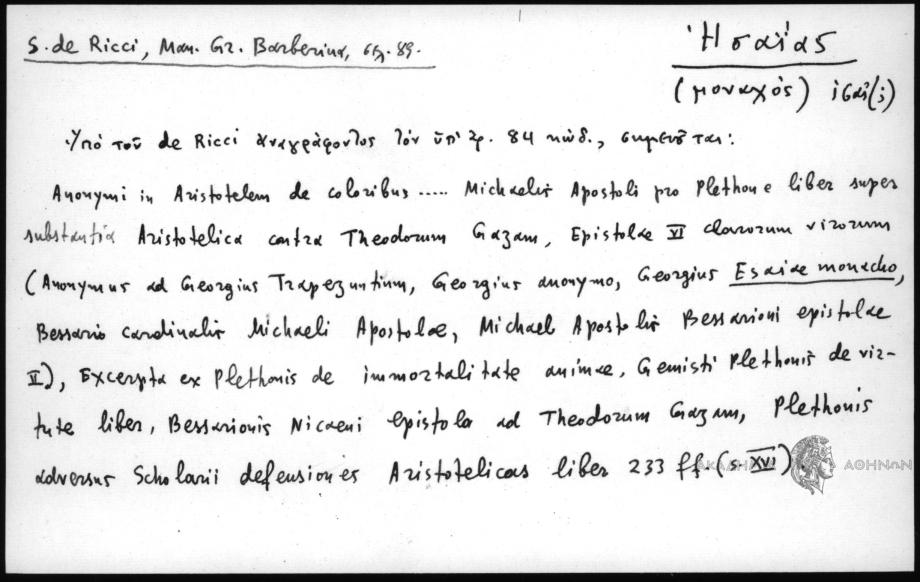 S. de Ricci, Man. Gr. Barberina, σελ. 89.
Ἠσαΐας
(μοναχός) ισαϊ(;)
Ὑπό τοῦ de Ricci ἀναγράφοντος τόν ὑπ' ἀρ. 84 κώδ., σημειοῦται:
Anonymi in Aristotelem de coloribus ..... Michaelis Apostoli pro Plethone liber super
substantia Aristotelica contra Theodorum Gazam, Epistolae VI clarorum virorum
(Anonymus ad Georgius Trapezuntium, Georgius anonymo, Georgius Esaiae monacho,
Bessario cardinalis Michaeli Apostolae, Michael Apostolis Bessarioni epistolae
II), Excerpta ex Plethonis de immortalitate animae, Gemisti Plethonis de vir-
tute liber, Bessarionis Nicaeni epistola ad Theodorum Gazam, Plethonis
adversus Scholarii defensiones Aristotelicas liber 233 ff. (s. XVI).
ΑΚΑΔΗΜΙΑ ΑΘΗΝΩΝ